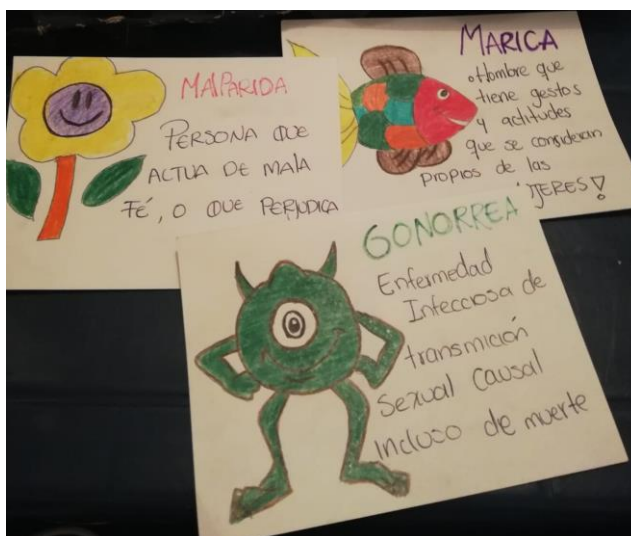 MALPARIDA
PERSONA QUE
ACTUA DE MALA
FÉ, O QUE PERJUDICA
MARICA
Hombre que
tiene gestos
y actitudes
que se consideran
propios de las
GONORREA
Enfermedad
Infecciosa de
transmición
Sexual Causal
incluso de muerte